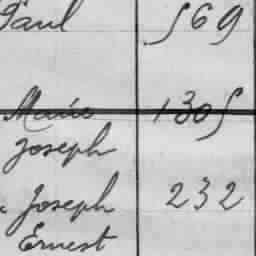 Paul 569
Marie 1305
Joseph
Joseph 232
Ernest